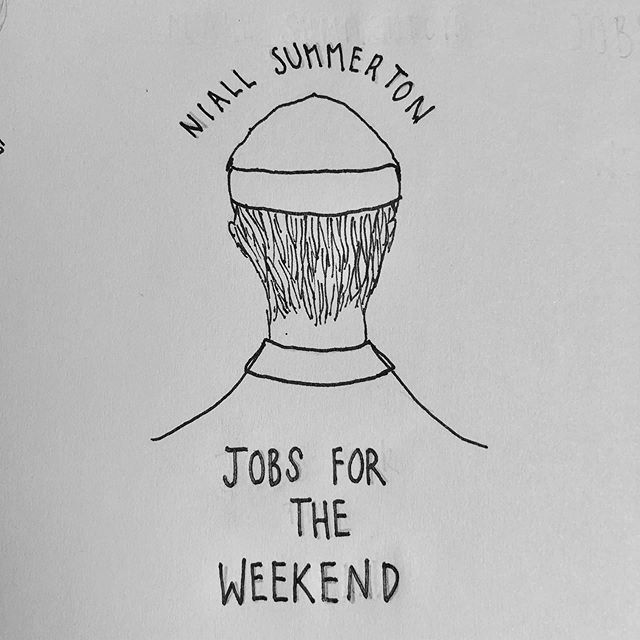 NIALL SUMMERTON
JOBS FOR
THE
WEEKEND